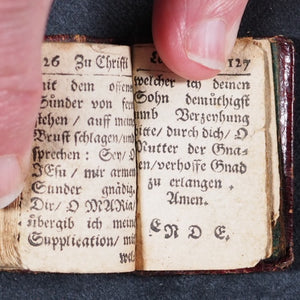 26 Zu Christi
mit dem offene
Sünder von fer
stehen / auff meine
Brust schlagen / und
sprechen: Sey / O
JEsu / mir armen
Sünder gnädig.
Dir / O MARIA /
übergib ich meine
Supplication / mit
wel
127
welcher ich deinen
Sohn demüthigst
umb Verzeyhung
bitte / durch dich / O
Mutter der Gna-
den / verhoffe Gnad
zu erlangen.
Amen.
ENDE.